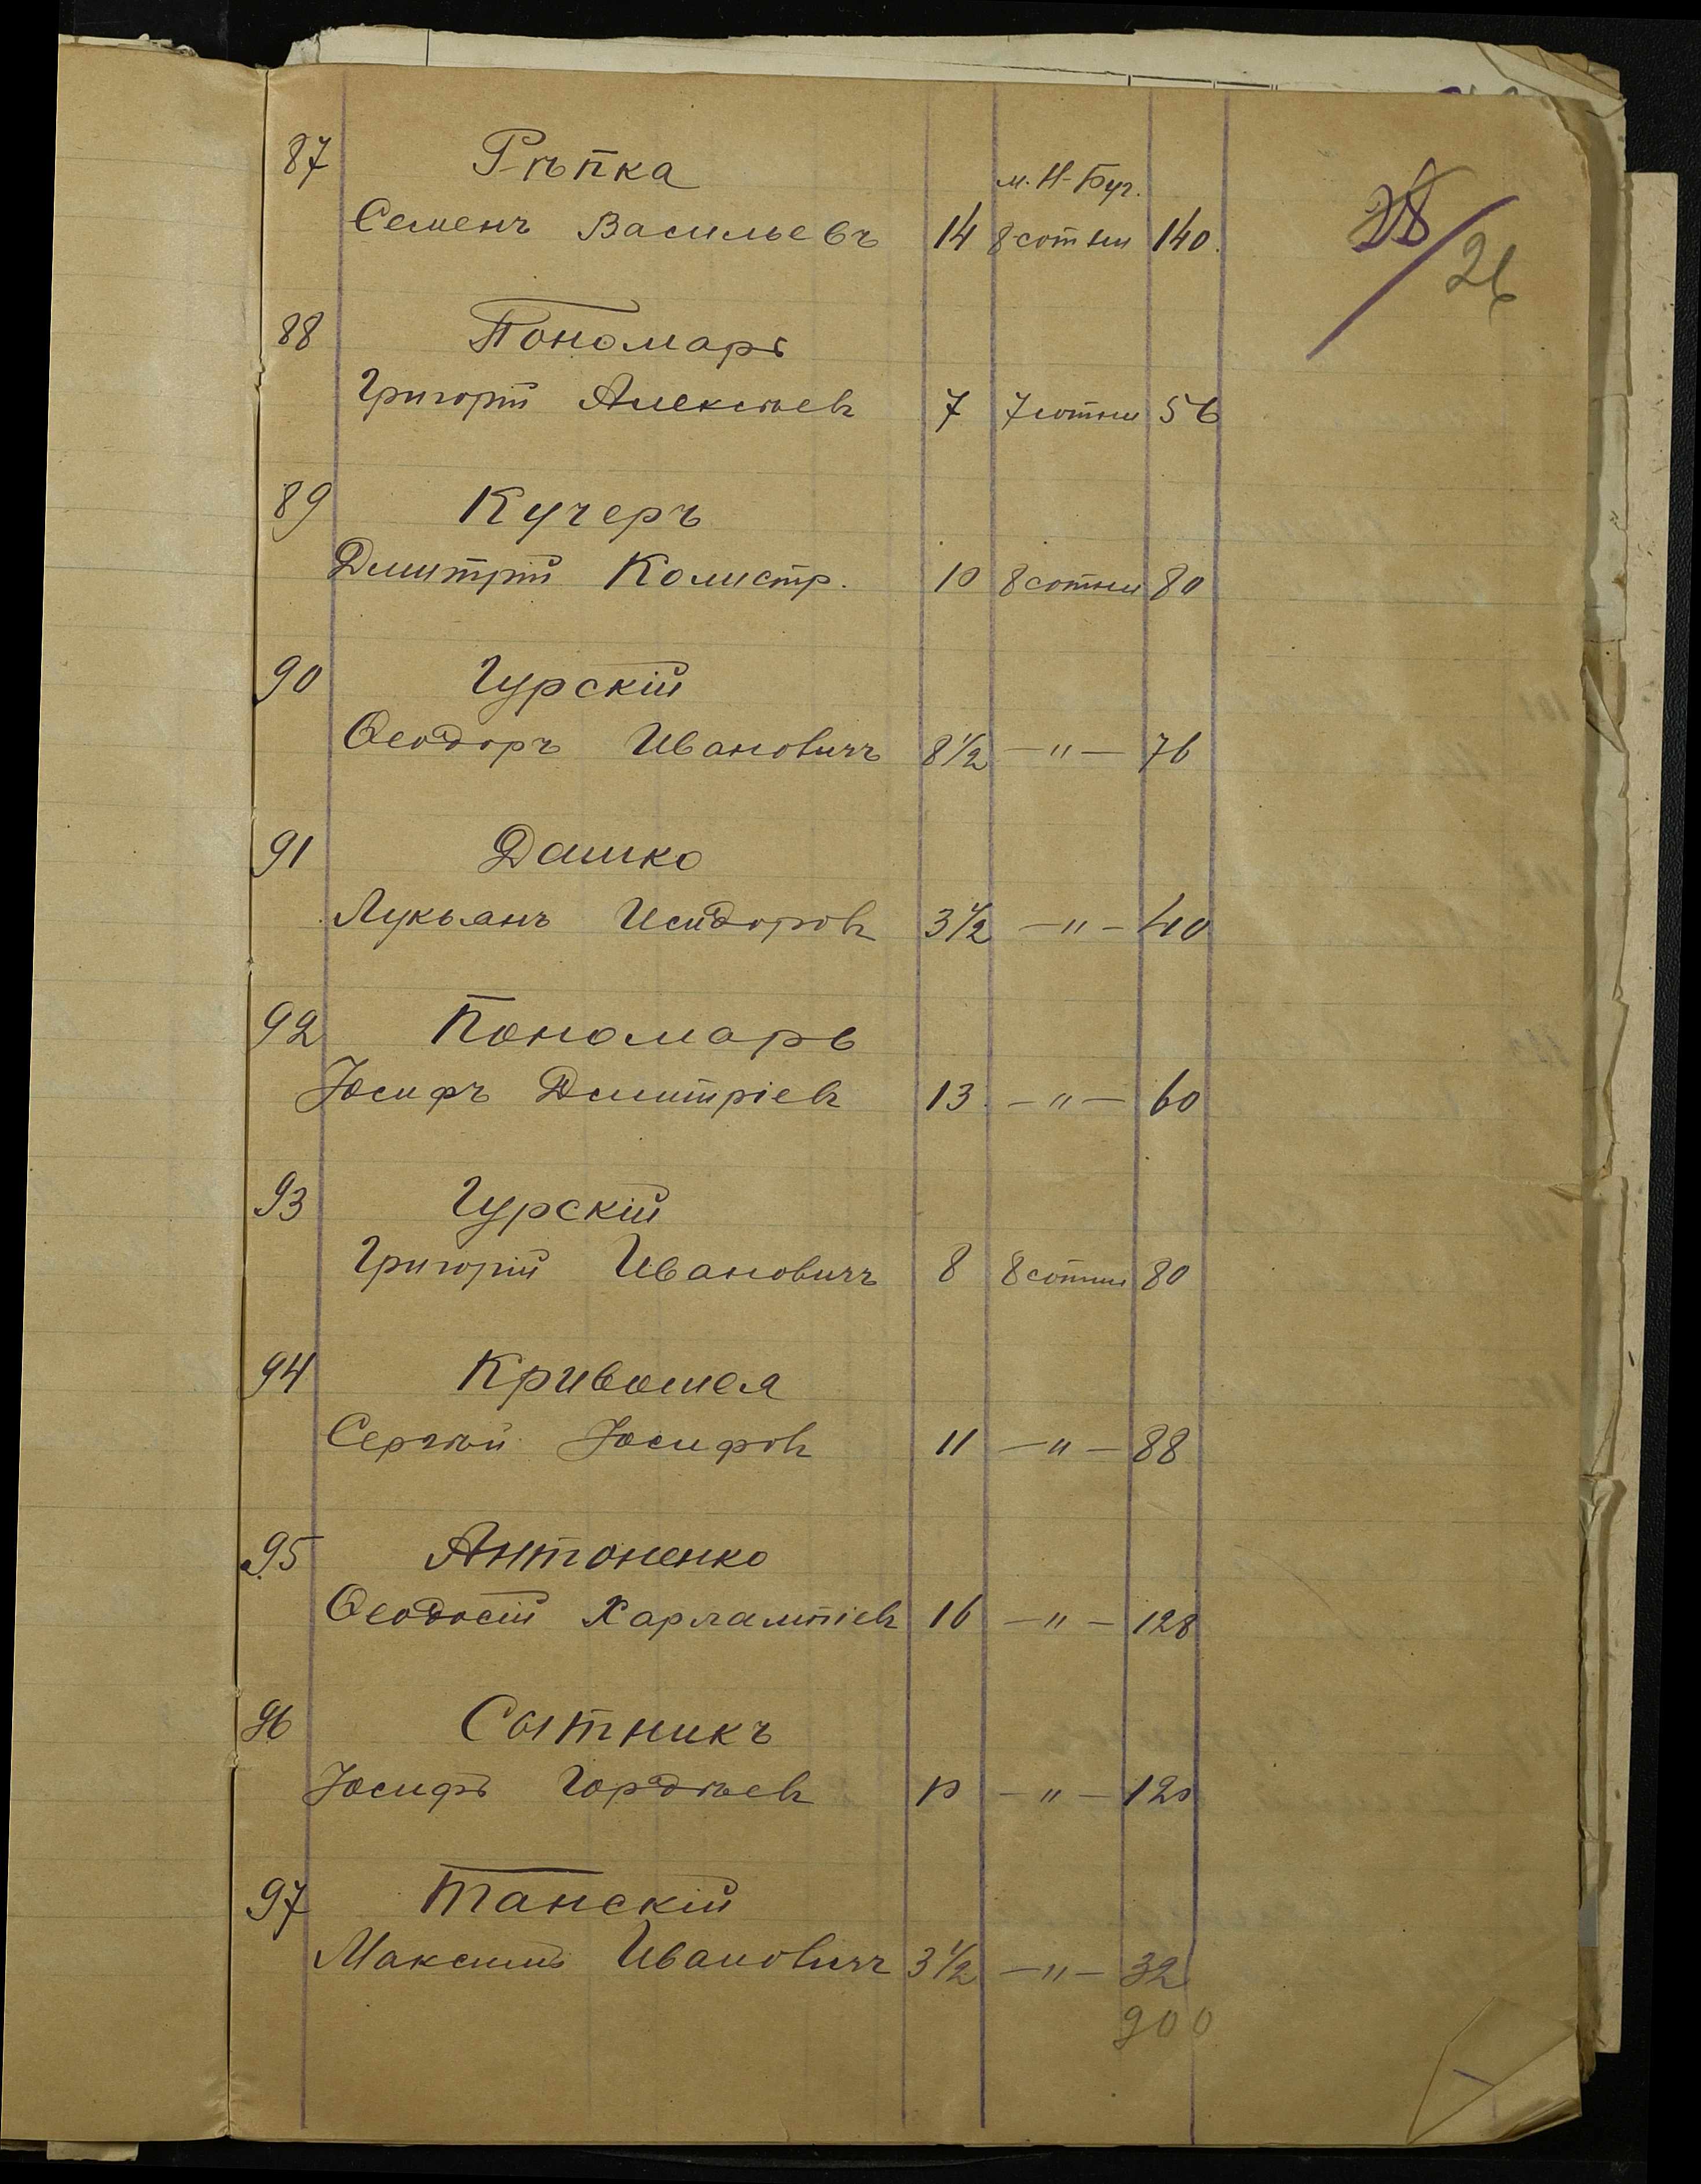 87 Рѣпка м. Н-Буг.
Семенъ Васильевъ 14 8 сотни 140.
28/26
88 Пономарь
Григорій Алексѣевъ 7 7 сотни 56
89 Кучеръ
Дмитрій Калистр. 10 8 сотни 80
90 Гурскій
Ѳеодоръ Ивановичъ 8 1/2 —"— 76
91 Дашко
Лукьянъ Исидоровъ 3 1/2 —"— 40
92 Пономарь
Іосифъ Дмитріевъ 13 —"— 60
93 Гурскій
Григорій Ивановичъ 8 8 сотни 80
94 Кривошея
Сергѣй Іосифовъ 11 —"— 88
95 Антоненко
Ѳеодосій Харлампіевъ 16 —"— 128
96 Сотникъ
Іосифъ Гордѣевъ 10 —"— 120
97 Танскій
Максимъ Ивановичъ 3 1/2 —"— 32
900